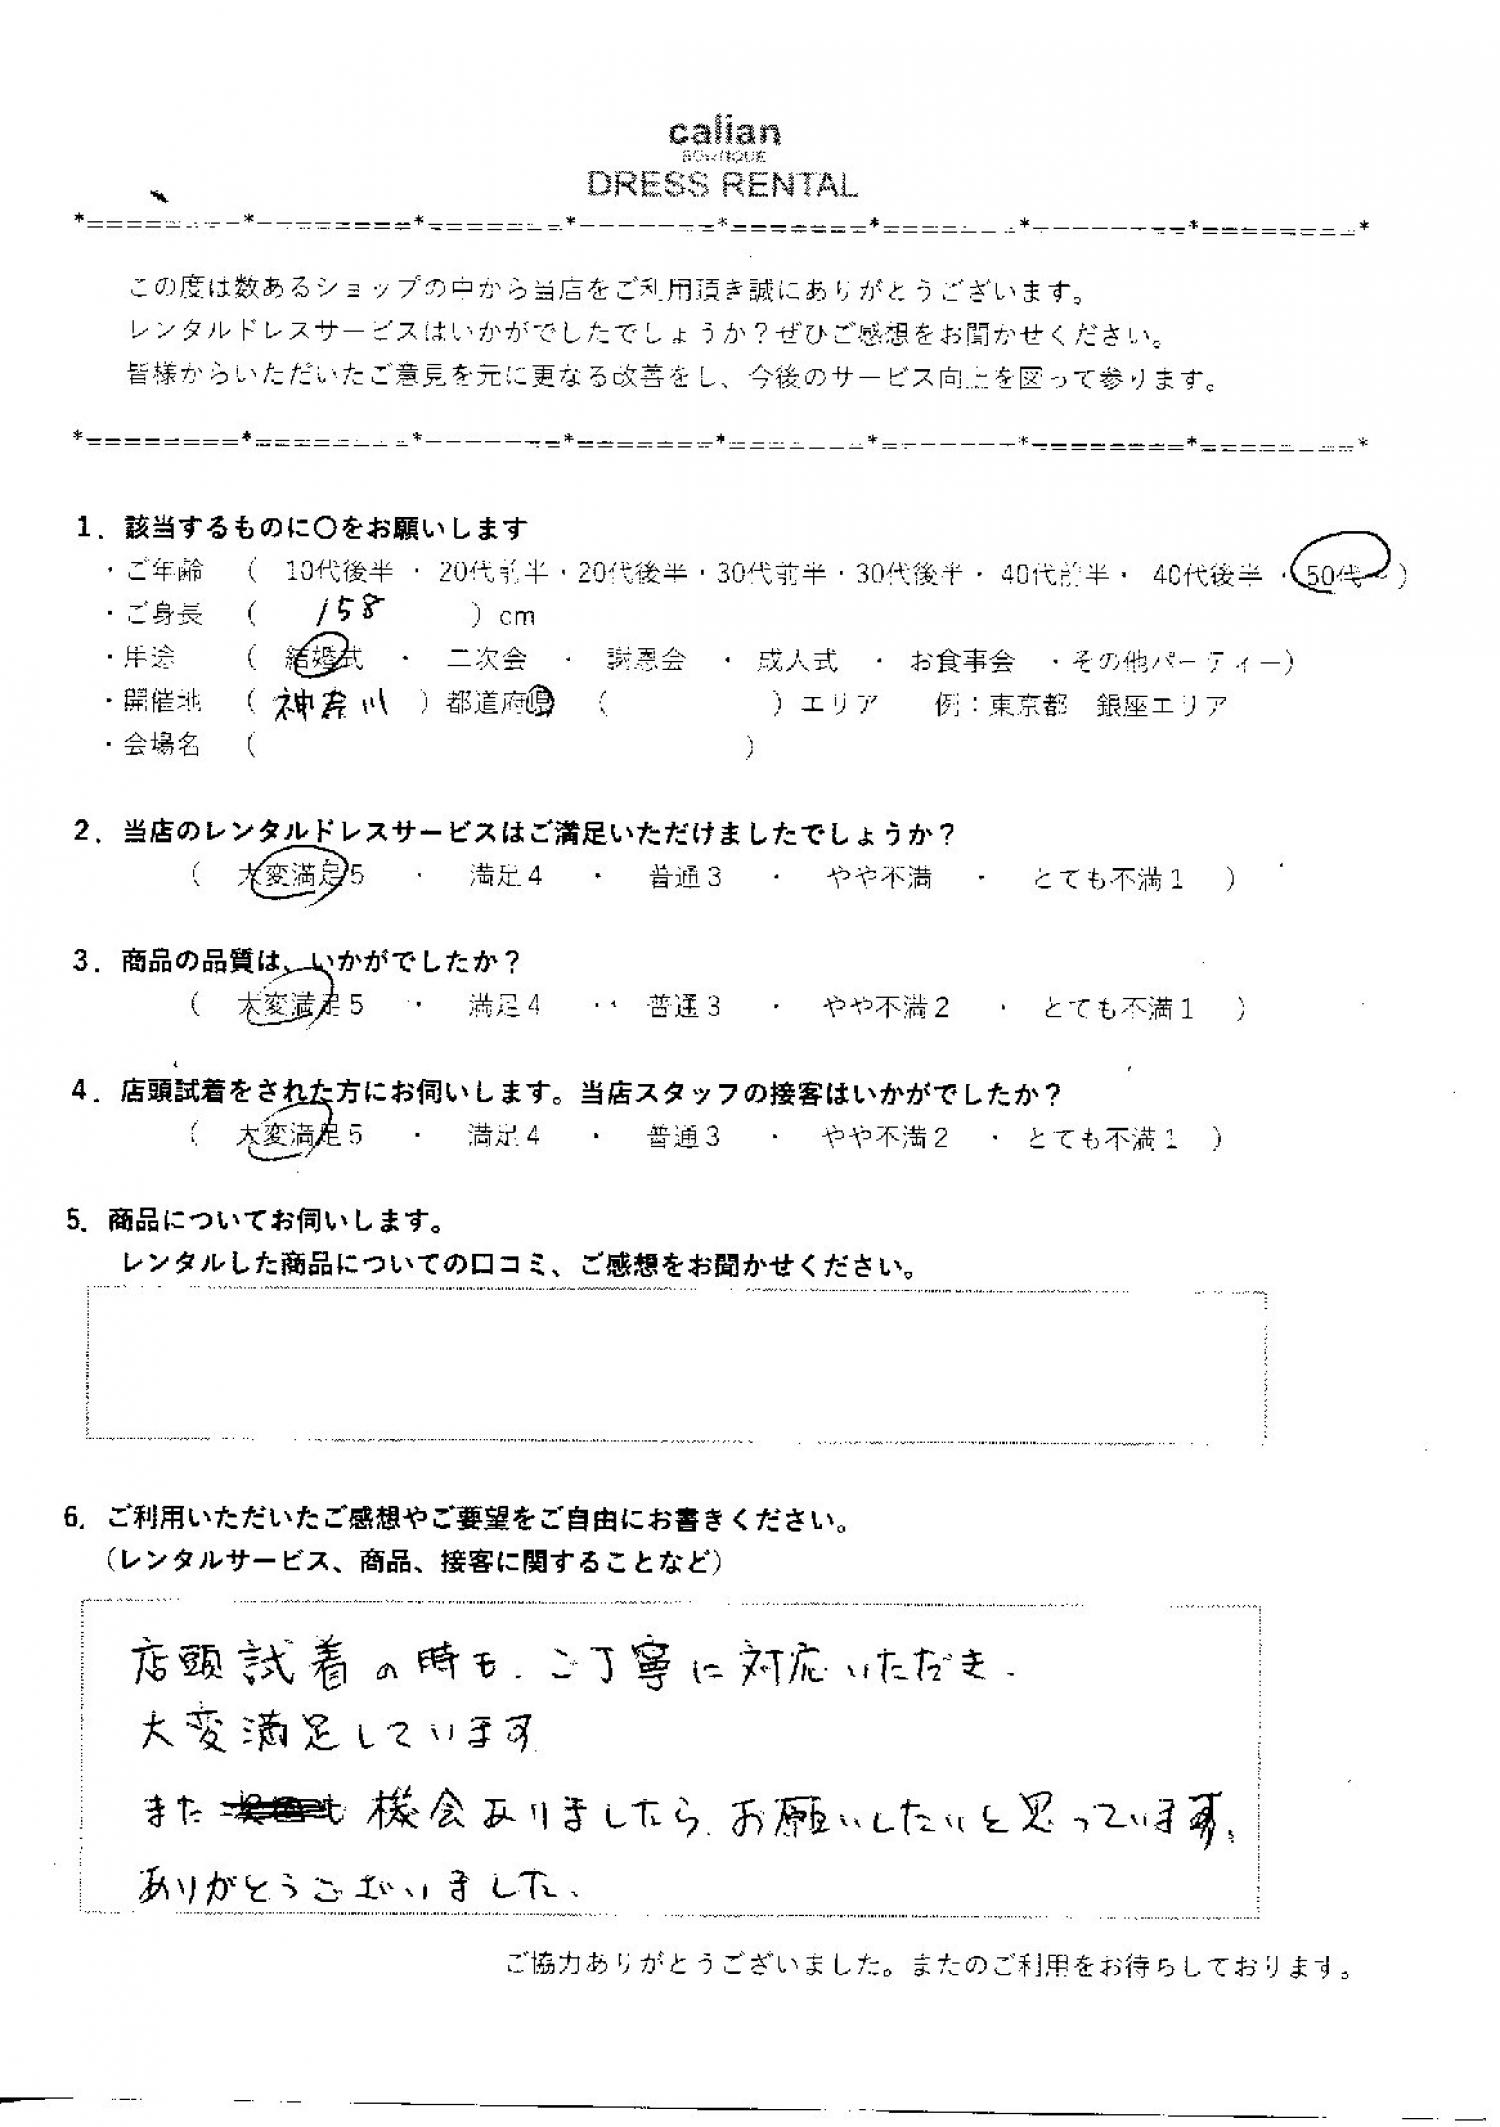 calian
BOUTIQUE
DRESS RENTAL
*========*========*=======*=======*=======*=======*========*========*
この度は数あるショップの中から当店をご利用頂き誠にありがとうございます。
レンタルドレスサービスはいかがでしたでしょうか？ぜひご感想をお聞かせください。
皆様からいただいたご意見を元に更なる改善をし、今後のサービス向上を図って参ります。
*========*========*=======*=======*=======*=======*========*========*
1．該当するものに〇をお願いします
・ご年齢 （ 10代後半 ・ 20代前半・20代後半・30代前半・30代後半・ 40代前半・ 40代後半 ・ 50代～）
・ご身長 （ 158 ）cm
・用途 （ 結婚式 ・ 二次会 ・ 謝恩会 ・ 成人式 ・ お食事会 ・その他パーティー）
・開催地 （ 神奈川 ）都道府県 （ ）エリア 例：東京都 銀座エリア
・会場名 （ ）
2．当店のレンタルドレスサービスはご満足いただけましたでしょうか？
（ 大変満足5 ・ 満足4 ・ 普通3 ・ やや不満 ・ とても不満1 ）
3．商品の品質は、いかがでしたか？
（ 大変満足5 ・ 満足4 ・ 普通3 ・ やや不満2 ・ とても不満1 ）
4．店頭試着をされた方にお伺いします。当店スタッフの接客はいかがでしたか？
（ 大変満足5 ・ 満足4 ・ 普通3 ・ やや不満2 ・ とても不満1 ）
5．商品についてお伺いします。
レンタルした商品についての口コミ、ご感想をお聞かせください。
6．ご利用いただいたご感想やご要望をご自由にお書きください。
（レンタルサービス、商品、接客に関することなど）
店頭試着の時も、ご丁寧に対応いただき、
大変満足しています
また 機会ありましたら、お願いしたいと思っています。
ありがとうございました、
ご協力ありがとうございました。またのご利用をお待ちしております。